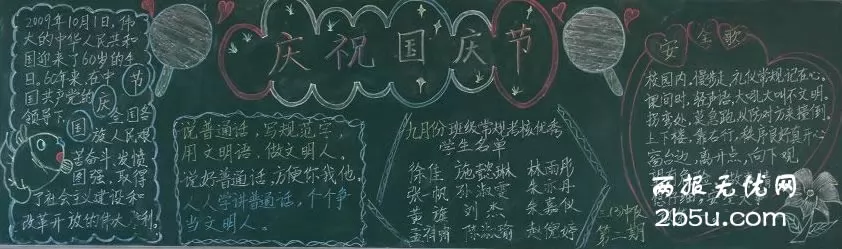 庆祝国庆节
2009年10月1日,伟
大的中华人民共和
国迎来了60岁的生
日,60年来,在中
国共产党的
领导下,
全国各
族人民艰
苦奋斗,发愤
图强,取得
了社会主义建设和
改革开放的伟大胜利。
国
庆
节
说普通话,写规范字,
用文明语,做文明人。
说好普通话,方便你我他。
人人学讲普通话,个个争
当文明人。
九月份班级常规考核优秀
学生名单
徐佳 林雨彤
张一帆 孙淑雯 朱亦丹
黄旋 刘杰 朱嘉仪
安全歌
校园内,慢步走,礼仪常规记在心。
课间时,轻声语,大吼大叫不文明。
拐弯处,莫急跑,以防对方来撞倒。
上下楼,靠右行,秩序良好真开心
离开点,向下观
第二期
两报无优网
2b5u.com